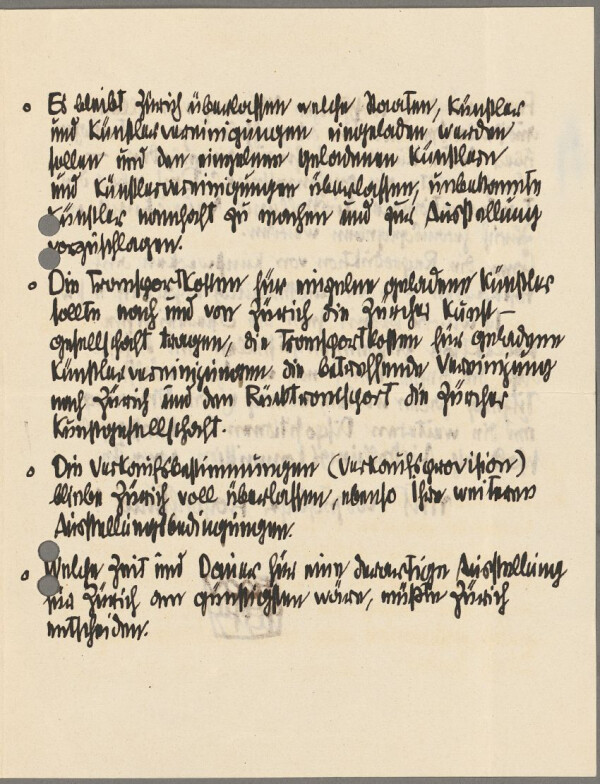 • Es bleibt Zürich überlassen welche Staaten, Künstler
und Künstlervereinigungen eingeladen werden
sollen und den einzelnen geladenen Künstlern
und Künstlervereinigungen überlassen, unbekannte
Künstler namhaft zu machen und zur Ausstellung
vorzuschlagen.
• Die Transportkosten für einzelne geladene Künstler
sollte nach und von Zürich die Zürcher Kunst–
gesellschaft tragen, die Transportkosten für geladene
Künstlervereinigungen die betreffende Vereinigung
nach Zürich und den Rücktransport die Zürcher
Kunstgesellschaft.
• Die Verkaufsbestimmungen (Verkaufsprovision)
bliebe Zürich voll überlassen, ebenso Ihre weiteren
Ausstellungsbedingungen.
• Welche Zeit und Dauer für eine derartige Ausstellung
für Zürich am günstigsten wäre, müßte Zürich
entscheiden.